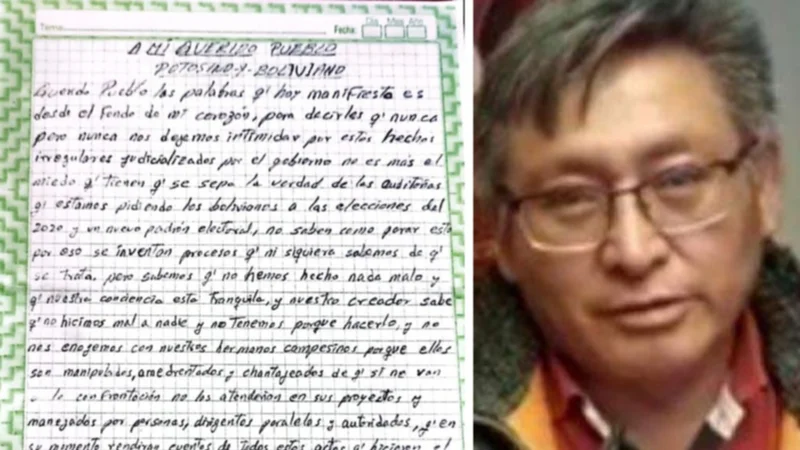 Tema:
Fecha: Dia Mes Año
A MI QUERIDO PUEBLO
POTOSINO Y BOLIVIANO
Querido Pueblo las palabras q' hoy manifiesto es
desde el fondo de mi corazón, para decirles q' nunca
pero nunca nos dejemos intimidar por estos hechos
irregulares judicializados por el gobierno no es mas el
miedo q' tienen q' se sepa la verdad de las auditorias
q' estamos pidiendo los bolivianos a las elecciones del
2020 y un nuevo padrón electoral, no saben como parar esto
por eso se inventan procesos q' ni siquiera sabemos de q'
se trata, pero sabemos q' no hemos hecho nada malo y
q' nuestra conciencia esta tranquila, y nuestro creador sabe
q' no hicimos mal a nadie y no tenemos porque hacerlo, y no
nos enojemos con nuestros hermanos campesinos porque ellos
son manipulados, amedrentados y chantajeados de q' si no van
a la confrontación no los atenderan en sus proyectos y
manejados por personas, dirigentes paralelos y autoridades, q' en
su momento rendiran cuentas de todos estos actos q' hicieron el